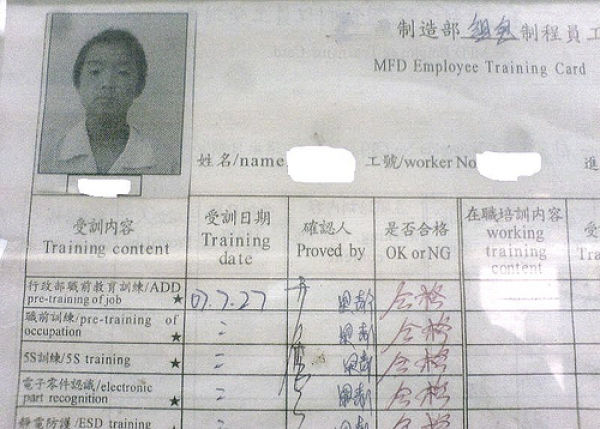 制造部 制程員工
MFD Employee Training Card
姓名/name 工號/worker No 進
受訓内容
Training content
受訓日期
Training
date
確認人
Proved by
是否合格
OK or NG
在職培訓内容
working
training
content
受
Tra
行政部職前教育訓練/ADD
pre-training of job ★
07.7.27
合格
職前訓練/pre-training of
occupation ★
合格
5S訓練/5S training ★
合格
電子零件認識/electronic
part recognition ★
合格
靜電防護/ESD training
合格